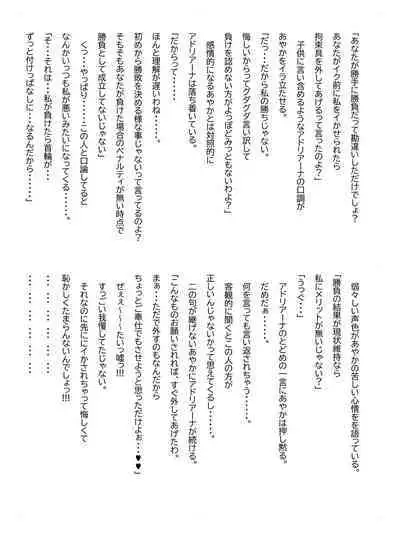 「あなたが勝手に勝負だって勘違いしただけでしょ？
あなたがイク前に私をイかせられたら
拘束具を外してあげるって言ったのよ？」
子供に言い含めるようなアドリアーナの口調が
あやかをイラ立たせる。
「だっ…だから私の勝ちじゃない。
悔しいからってグダグダ言い訳して
負けを認めない方がよっぽどみっともないわよ？」
感情的になるあやかとは対照的に
アドリアーナは落ち着いている。
「だからって・・・・・
ほんと理解が遅いわね・・・・・。
初めから勝敗を決める様な事じゃないって言ってるのよ？
そもそもあなたが負けた場合のペナルティが無い時点で
勝負として成立してないじゃない」
くっ・・やっぱり・・・この人と口論してると
なんかいっつも私が悪いみたいになってくる・・・・・。
「そ・・それは・・私が負けたら首輪が・・・
ずっと付けっぱなしに・・・なるんだから・・・・・」
弱々しい声色があやかの苦しい心情をを語っている。
「勝負の結果が現状維持なら
私にメリットが無いじゃない？」
「ううぐ・・・・」
アドリアーナのとどめの一言にあやかは押し黙る。
だめだぁ・・・・・。
何を言っても言い返されちゃう・・・・・。
客観的に聞くとこの人の方が
正しいんじゃないかって思えてくるし・・・・・。
二の句が継げないあやかにアドリアーナが続ける。
「こんなものお願いされれば、すぐ外してあげたわ。
まぁ・・・ただで外すのもなんだから
ちょっとご奉仕でもさせようと思っただけよぉ・・・♥♥」
ぜぇぇ～～～～たいっ嘘っ!!!
すっごい我慢してたじゃない。
それなのに先ににイかされちゃって悔しくて
恥かしくてたまらんないんでしょっ!!!
・・・・・・・・・・
・・・・・・・・・・